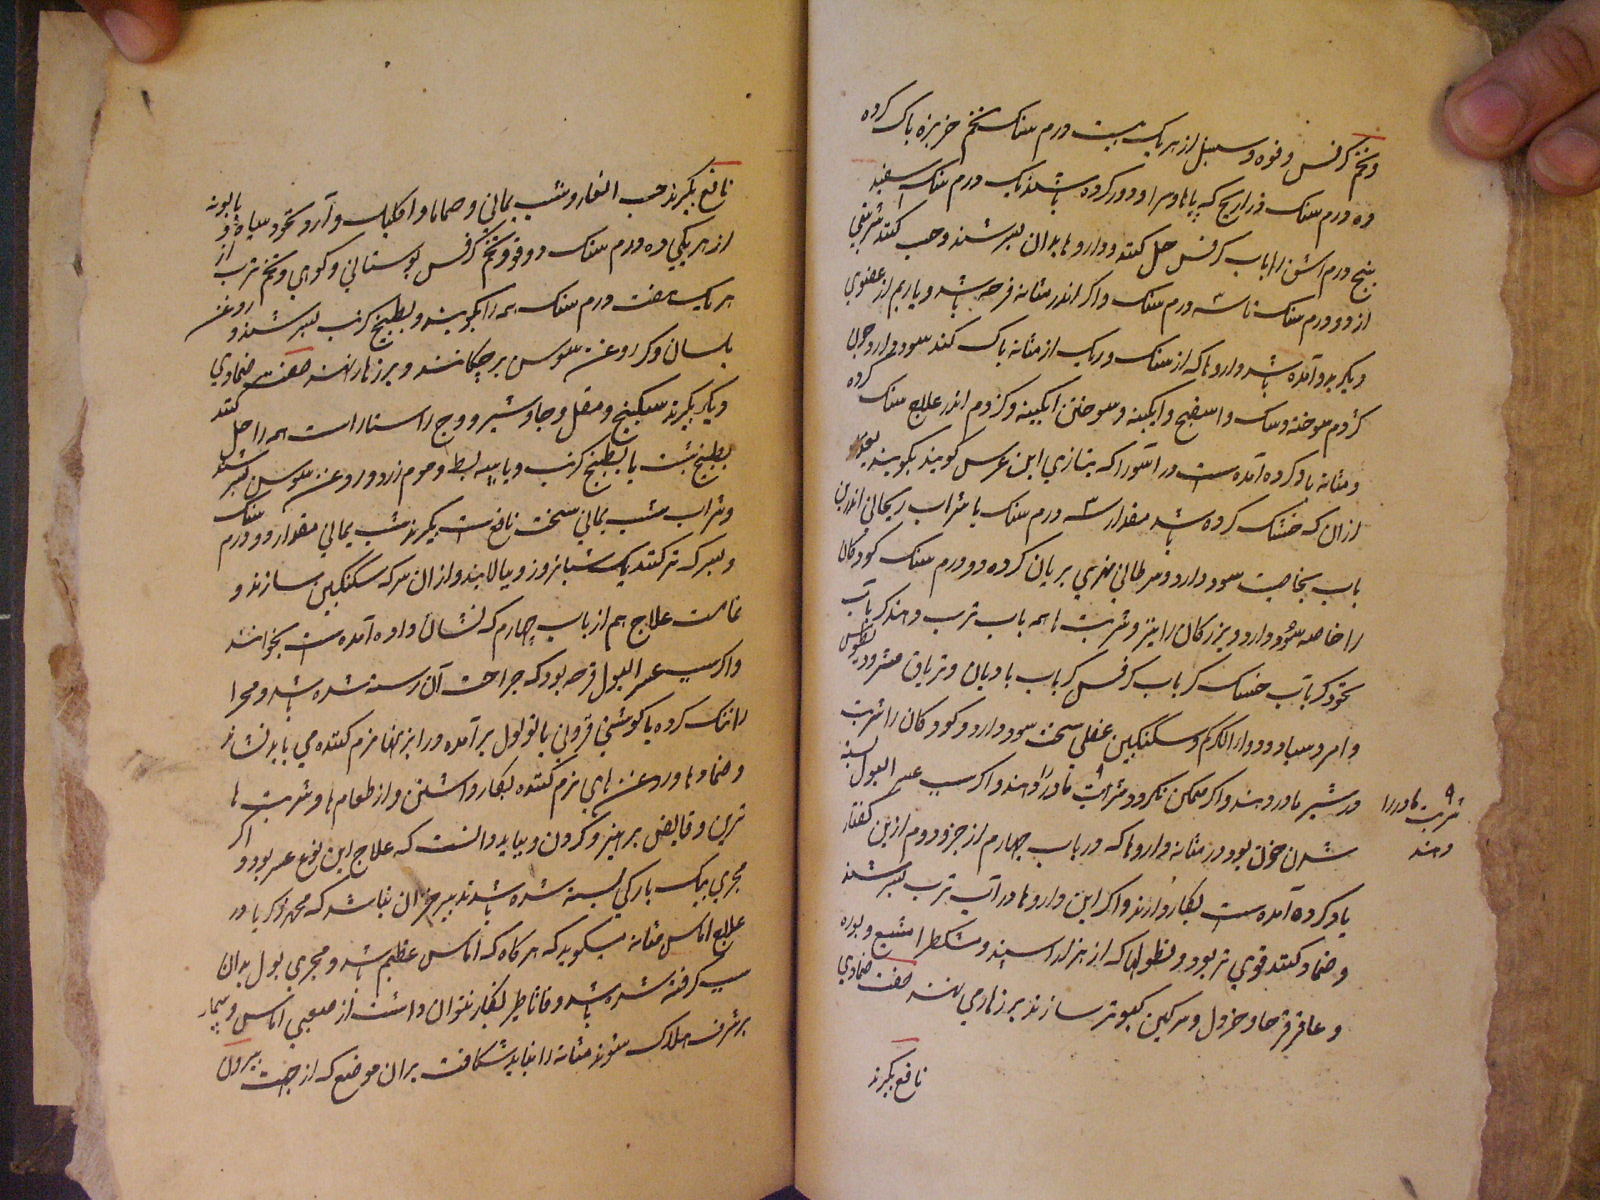 و تخم کرفس و فوه و سنبل از هر یک بیست درم سنک تخم خربزه پاک کرده
ده درم سنک ذراریح که پایها و سر او دور کرده باشند یک درم سنک سفید
پنج درم اشق را باب کرفس حل کنند و داروها بدان بسرشند و حب کنند شربتی
از دو درم سنک تا سه درم سنک و اکر اندر مثانه قرحه باشد و یا ریم از عضوی
دیکر بدو آمده باشد داروها که از سنک و ریک از مثانه پاک کند سود دارد چون
کژدم سوخته و سنک و اسفنج و ابکینه و سوختن ابکینه و کژدم اندر علاج سنک کرده
و مثانه یاد کرده آمده است و راسورا که بتازی ابن عرس کویند بکویند بعد
ازان که خشک کرده باشد مقدار سه درم سنک با شراب ریحانی اندرین
باب بخاصیت سود دارد و سرطانی نهری بریان کرده دو درم سنک کودکان
را خاصه سود دارد و بزرکان را نیز و شربت ها همه باب ترب دهند کر باب
نخود کر باب خسک کر باب کرفس کر باب بادیان و تریاق مثرودیطوس
و امروسیا و دواء الکرکم و سکنکبین عنصلی سخت سود دارد و کودکان را شربت
در شیر مادر دهند و اکر ممکن نکردد شربت مادر را دهند و اکر سبب عسر البول بسته
شدن خون بود در مثانه داروها که در باب چهارم از جزو دوم ازین کفتار
یاد کرده آمده است بکار دارند و اکر این داروها در آب ترب بسرشند
و ضماد کنند قوی تر بود و نطولها که از هزار اسپند و مشکطرامشیع و بوره
و عاقرقرحا و خردل و سرکین کبوتر سازند بر زهار می نهند صفت ضمادی
نافع بکیرند
شربت مادر را
دهند
نافع بکیرند حب الغار و شب یمانی و حماما و اکلیل و آرد نخود سیاه و بابونه
از هر یکی ده درم سنک دوقو و تخم کرفس بوستانی و کوهی و تخم ترب از
هر یک هفت درم سنک همه را بکوبند و بطبیخ کرنب بسرشند و روغن
بلسان و کر روغن سوسن بر چکانند و بر زهار نهند صفت ضمادی
دیکر بکیرند سکبینج و مقل و جاوشیر و وج راستاراست همه را حل کنند
بطبیخ شبت یا بطبیخ کرنب و با پیه بط و موم زرد و روغن سوسن بسرشند
و شراب شب یمانی سخت نافع است بکیرند شب یمانی مقدار دو درم سنک
و بسرکه تر کنند یک شبانروز و بپالایند و ازان سرکه سکنکبین سازند و
تمامت علاج هم از باب چهارم که نشان داده آمده است بخوانند
و اکر سبب عسر البول قرحه بود که جراحت آن رسته شده باشد و مجرا
را تنک کرده یا کوشتی فزونی یا ثولول برآمده در ابزنها نرم کننده می باید نشاند
و ضمادها و روغن های نرم کننده بکار داشتن و از طعام ها و شربت ها
ترین و قابض پرهیز کردن و بباید دانست که علاج این نوع عسر بود و اکر
مجری بیک بارکی بسته شده باشد تدبیر جز آن نباشد که محمد زکریا در
علاج اماس مثانه میکوید که هر کاه که اماس عظیم باشد و مجری بول بدان
سبب کرفته شده باشد و قاثاطیر بکار نتوان داشت از صعبی اماس و بیمار
بر شرف هلاک شوند مثانه را بباید شکافت بران موضع که از جهت بیرون